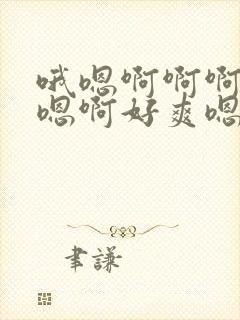 哦嗯啊啊啊
嗯啊好爽嗯
聿謙